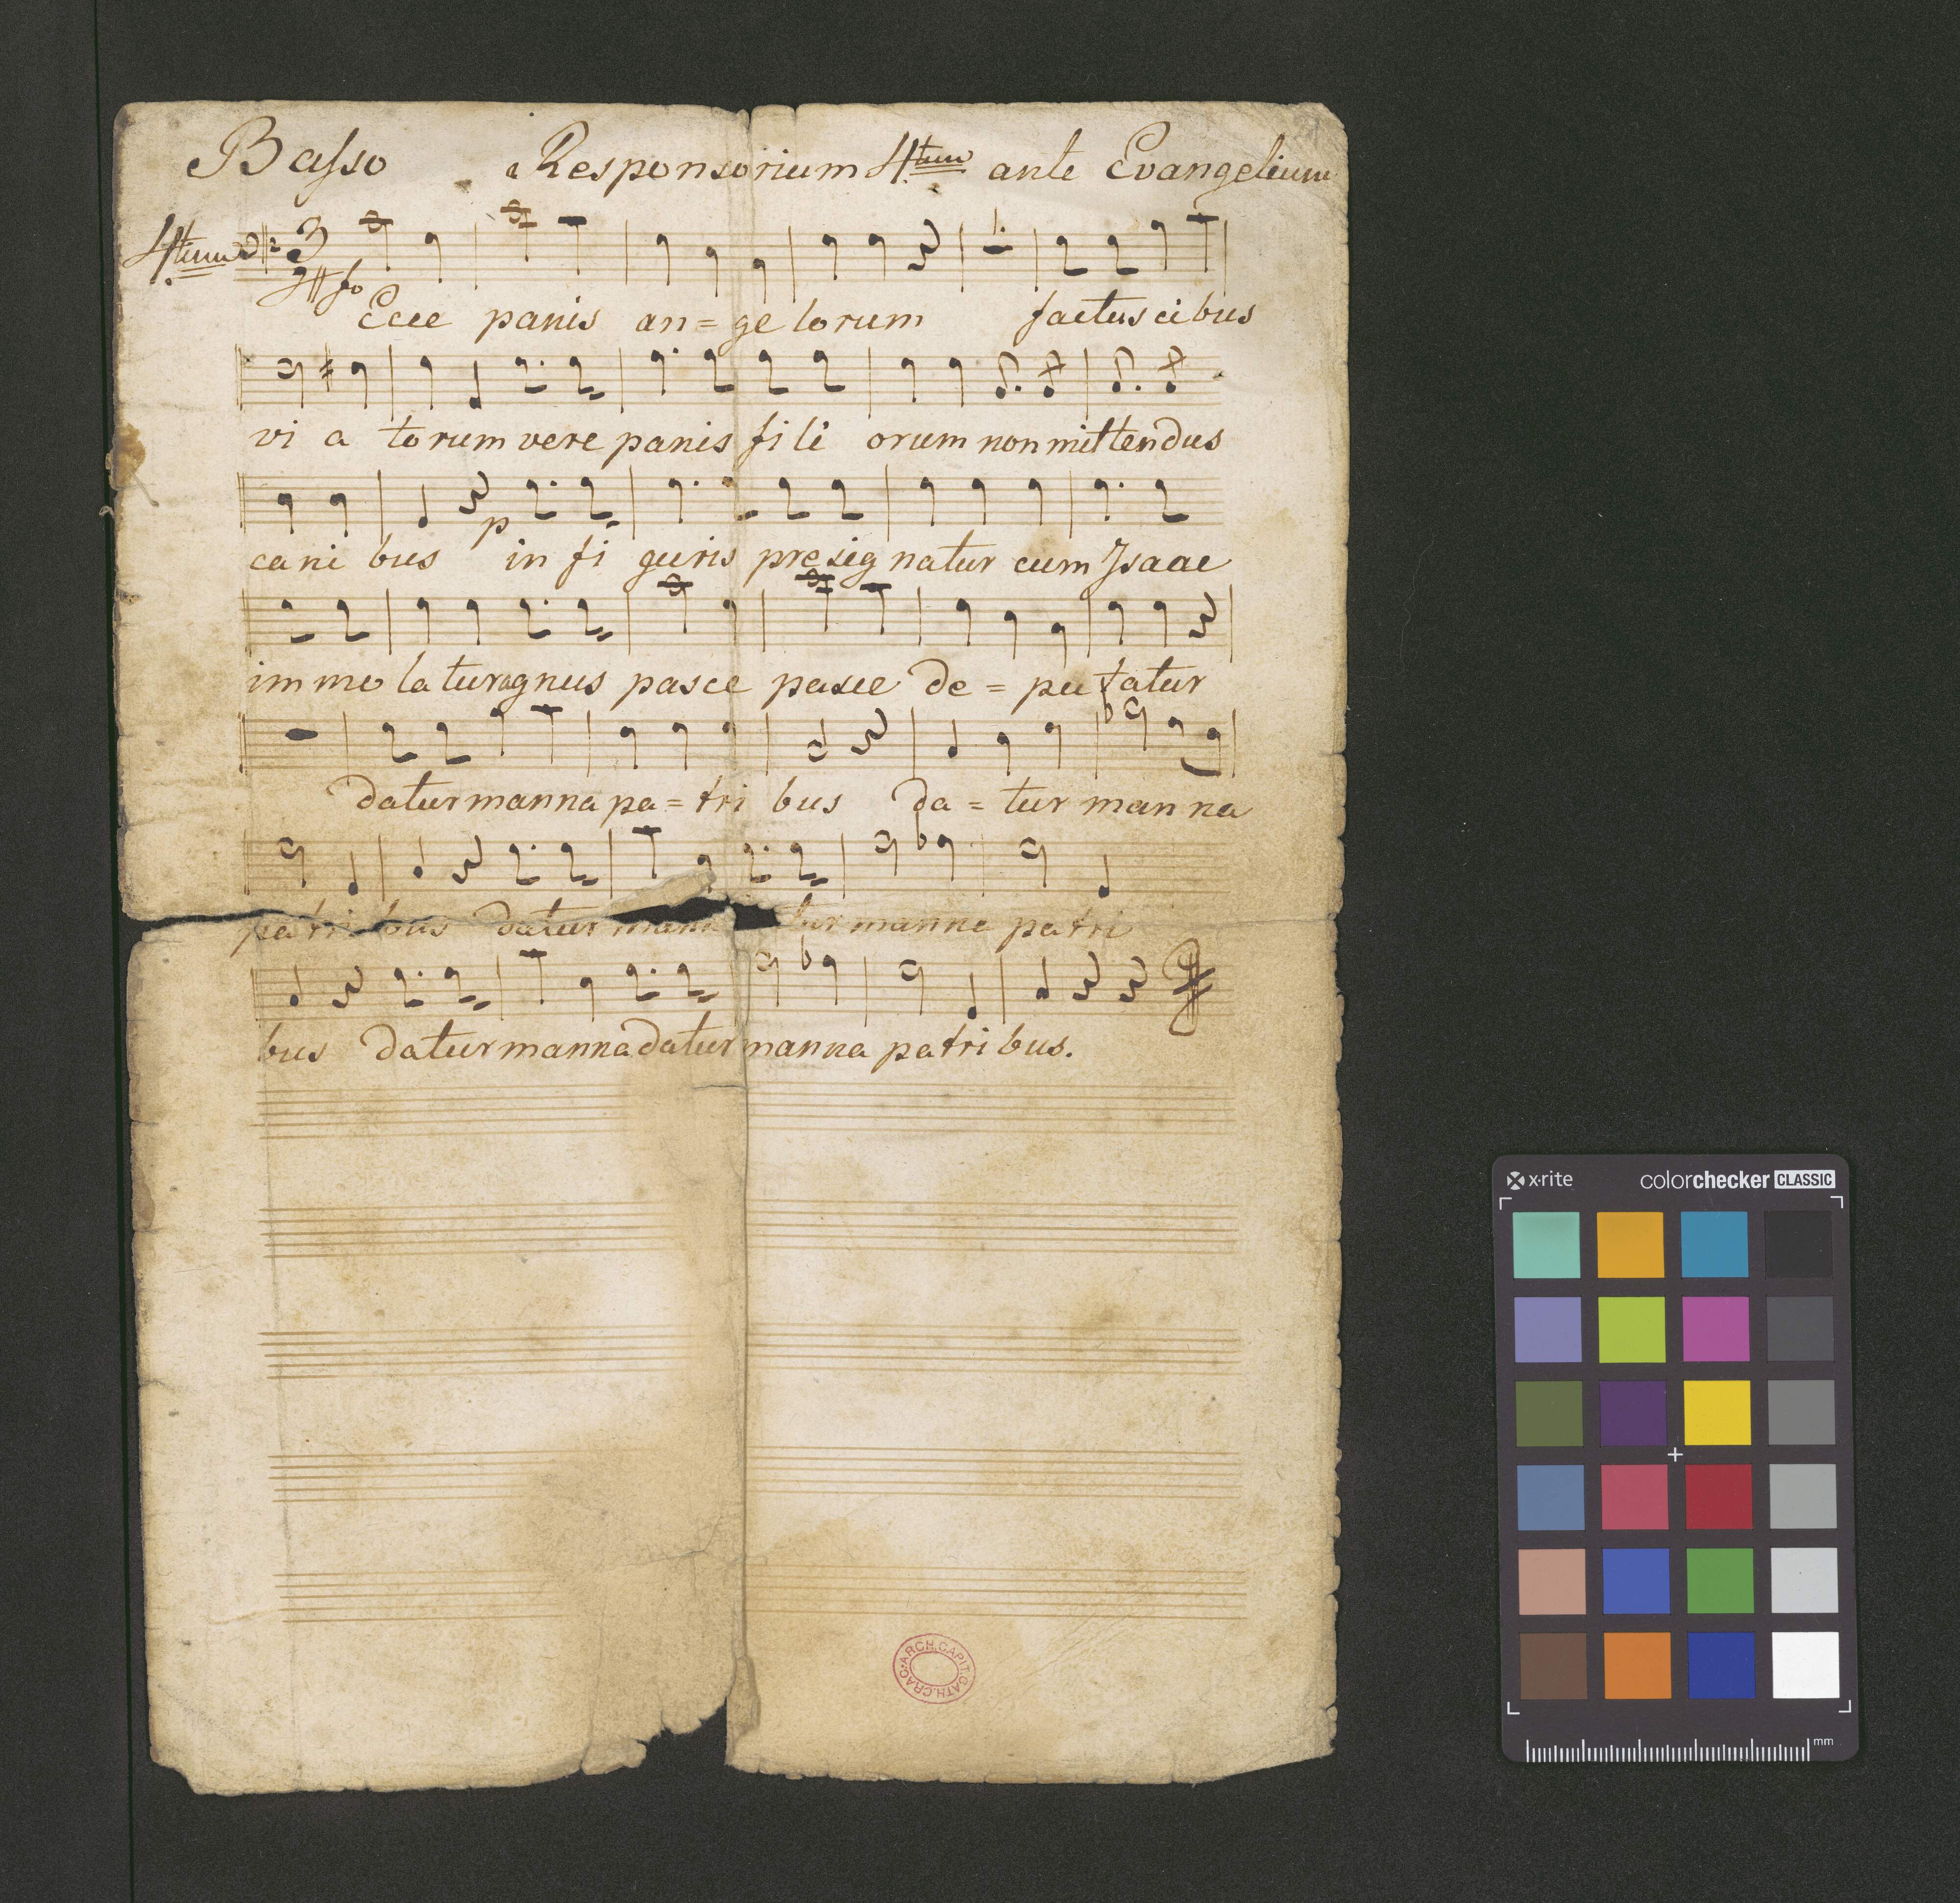 Basso Responsorium 4tum ante Evangelium
4tum 3 fo
Ecce panis an=ge lorum factus cibus
vi a torum vere panis fili orum non mittendus
p
cani bus in fi guris presig natur cum Isaac
im mo latur agnus pasce pasce de=pu tatur
datur manna pa=tri bus da=tur man na
patri bus datur mann tur manna patri
bus datur manna datur manna patri bus.
ARCH.CAPIT.CATH.CRAC.
x·rite colorchecker CLASSIC
mm